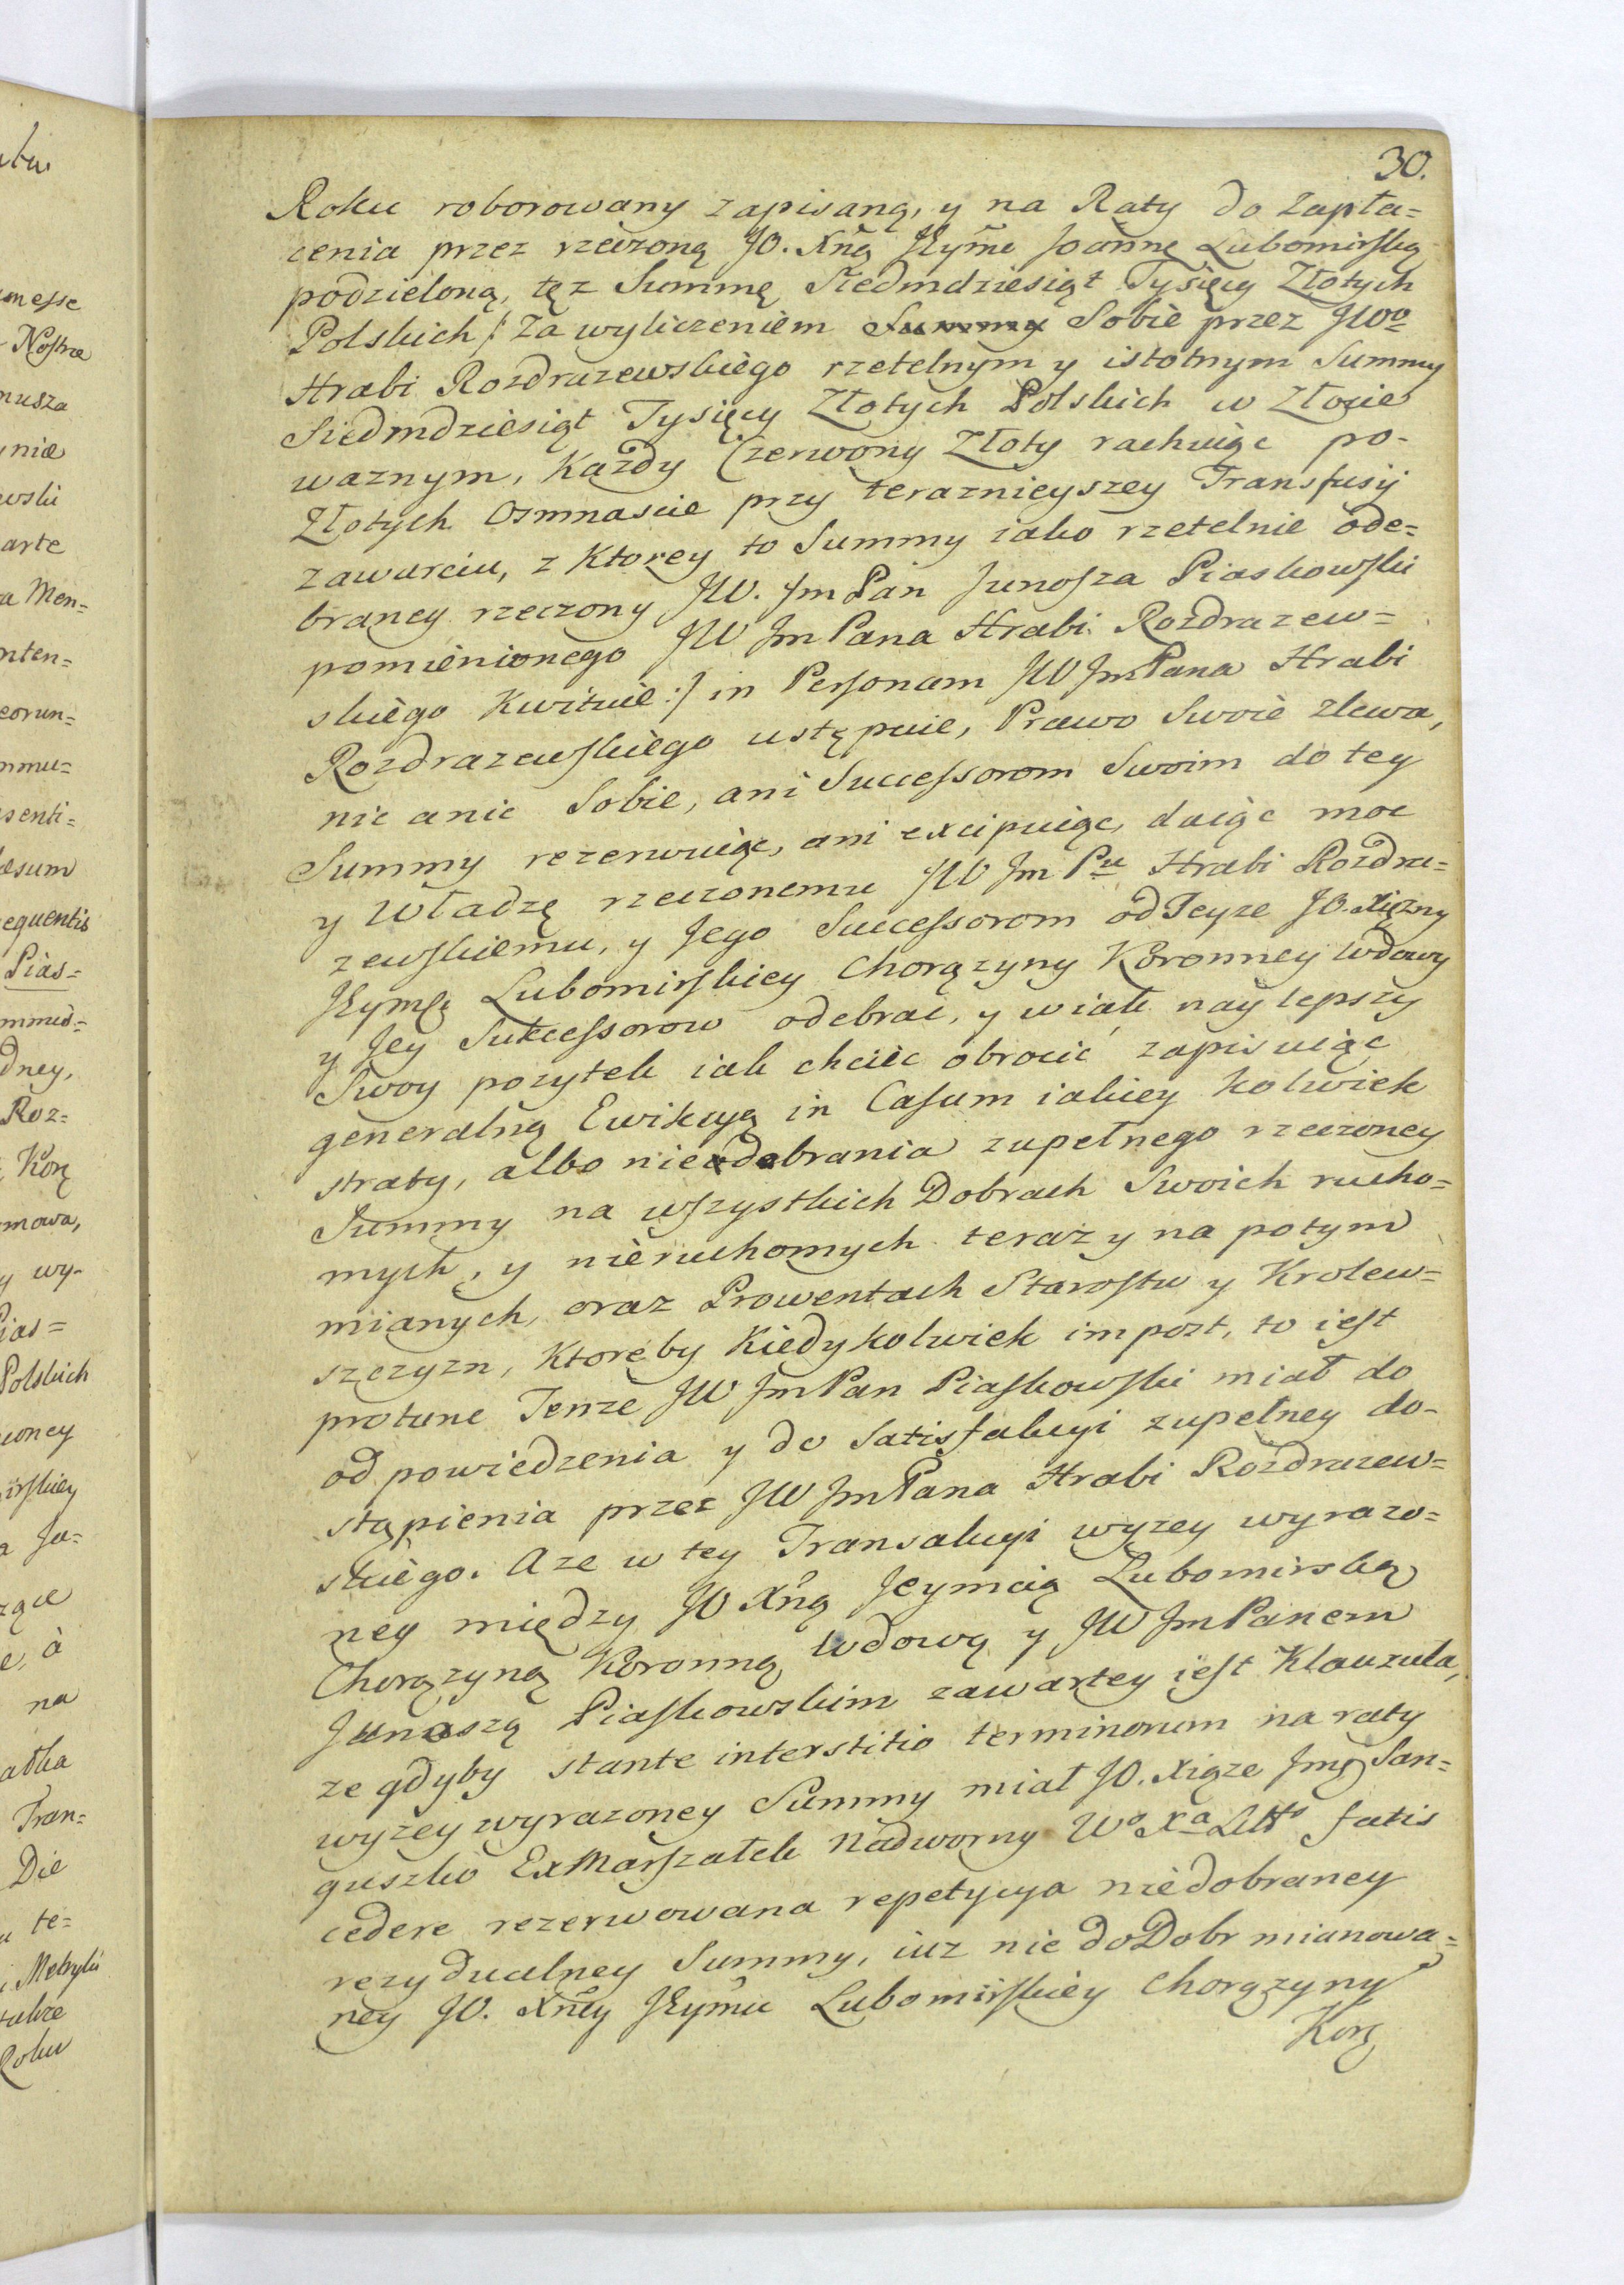 30.
Roku roborowany zapisaną, y na Raty do Zapła=
cenia przez rzeczoną JO. Xñą JEymć Joannę Lubomirską
podzieloną, tęz Summę Siedmdziesiąt Tysięcy Złotych
Polskich /: Za wyliczeniem Summy Sobie przez JWo
Hrabi Rozdrazewskiego rzetelnym y istotnym Summy
Siedmdziesiąt Tysięcy Złotych Polskich w Złocie
waznym, Każdy Czerwony Złoty rachuiąc po-
Złotych Osmnascie przy teraznieyszey Transfusyi
zawarciu, z Ktorey to Summy iako rzetelnie ode=
braney rzeczony JW. Jm Pan Junosza Piaskowski
pomienionego JW Jm Pana Hrabi Rozdrazew=
skiego Kwituie :/ in Personam JW Jm Pana Hrabi
Rozdrazewskiego ustępuie, Prawo Swoie zlewa,
nic a nic Sobie, ani Successorom Swoim do tey
Summy rezerwuiąc, ani excipuiąc, daiąc moc
y Władzę rzeczonemu JW Jm Pu Hrabi Rozdra=
zewskiemu, y Jego Successorom od Teyze JO. Xięzny
JEymść Lubomirskiey Chorązyny Koronney Wdowy
y Jey Sukcessorow odebrać, y w iak naylepszy
Swoy pozytek iak chcieć obrocić zapisuiąc
generalną Ewikcyą in Casum iakiey kolwiek
straty, albo nieodebrania zupełnego rzeczoney
Summy na wszystkich Dobrach Swoich rucho=
mych, y nieruchomych teraz y na potym
mianych, oraz Prowentach Starostw y Krolew=
szczyzn, Ktoreby Kiedykolwiek impost. to iest
protunc Tenze JW Jm Pan Piaskowski miał do
odpowiedzenia y do Satisfakcyi zupełney do-
stąpienia przez JW Jm Pana Hrabi Rozdrazew=
skiego. Aze w tey Transakcyi wyzey wyrazo=
ney między JO Xñą Jeymcią Lubomirską
Chorązyną Koronną Wdową y JW Jm Panem
Junoszą Piaskowskim zawartey iest Klauzula,
ze gdyby stante interstitio terminorum na raty
wyzey wyrazoney Summy miał JO. Xiąze Jmć San=
guszko ExMarszałek Nadworny Wo Xa Litto fatis
cedere rezerwowana repetycya niedobraney
rezydualney Summy, iuz nie do Dobr mianowa=
ney JO. Xñey JEymci Lubomirskiey Chorązyny
Korę